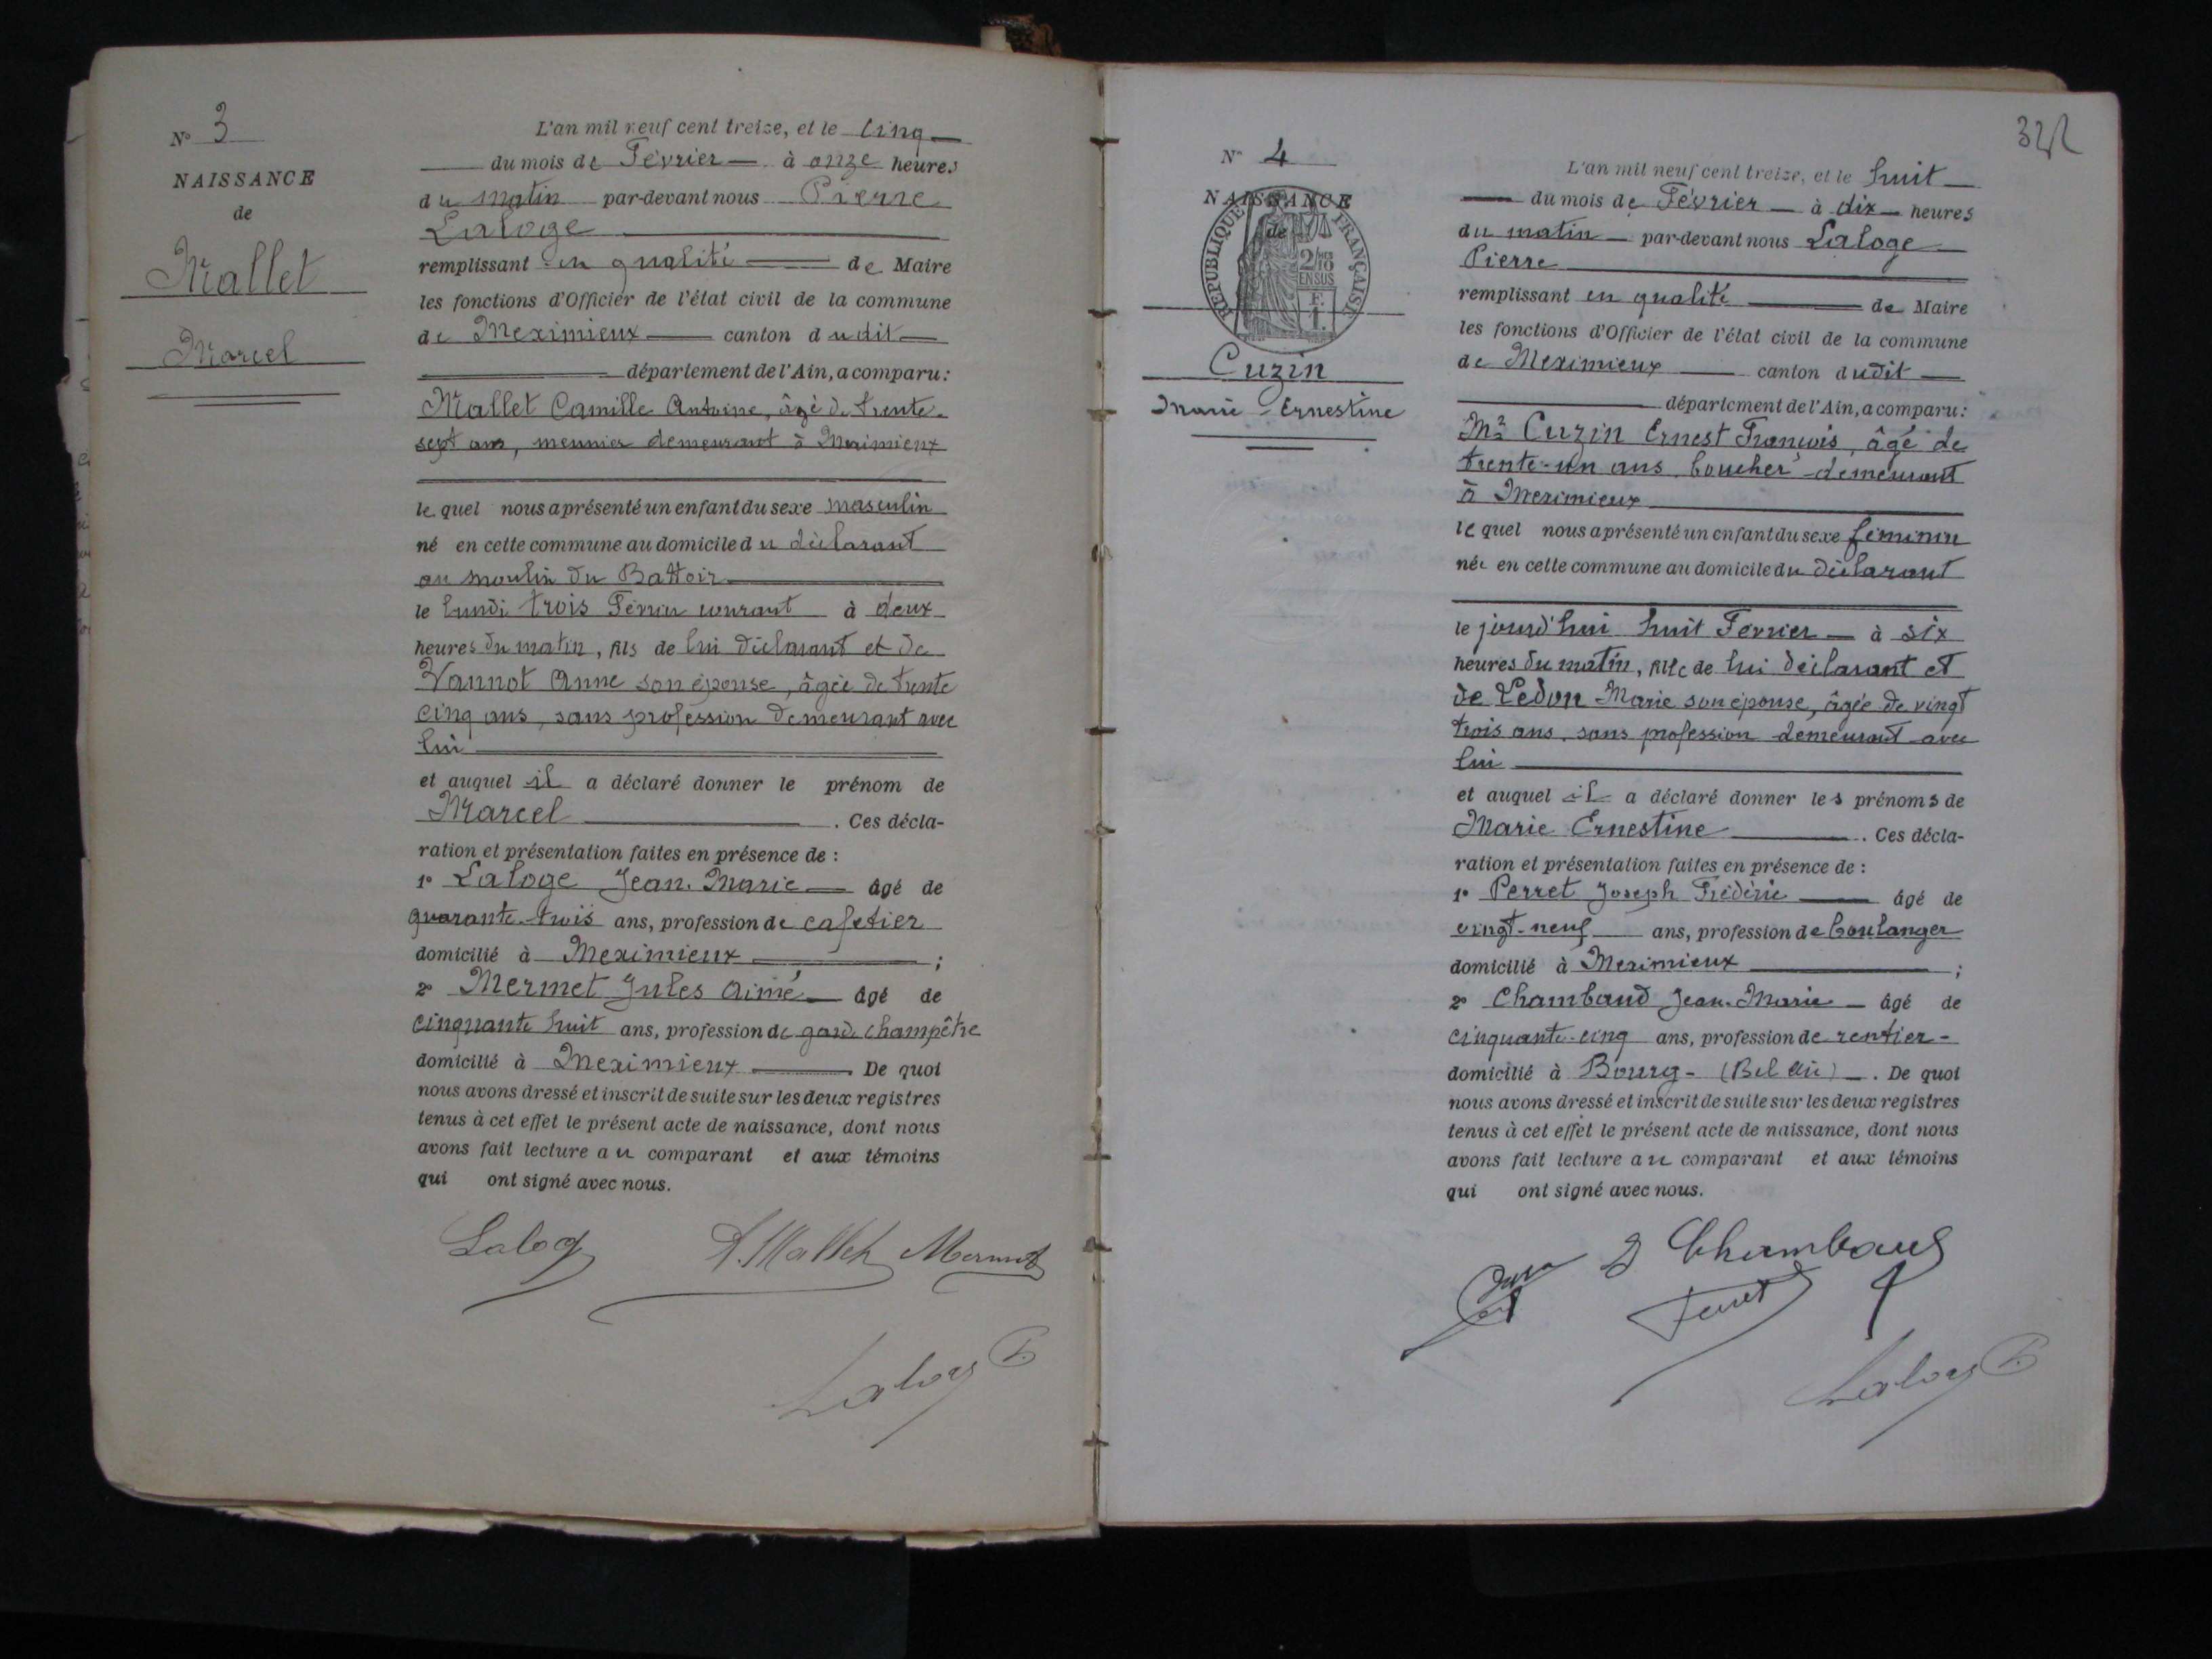 N° 3
NAISSANCE
de
Mallet
Marcel
L'an mil neuf cent treize, et le cinq
du mois de Février à onze heures
du matin par-devant nous Pierre
Laloge
remplissant en qualité de Maire
les fonctions d'Officier de l'état civil de la commune
de Meximieux canton dudit
département de l'Ain, a comparu:
Mallet Camille Antoine, âgé de trente-
sept ans, meunier demeurant à Meximieux
lequel nous a présenté un enfant du sexe masculin
né en cette commune au domicile du déclarant
au moulin du Battoir
le lundi trois Février courant à deux
heures du matin, fils de lui déclarant et de
Vannot Anne son épouse, âgée de trente
cinq ans, sans profession demeurant avec
lui
et auquel il a déclaré donner le prénom de
Marcel . Ces décla-
ration et présentation faites en présence de :
1° Laloge Jean-Marie âgé de
quarante-trois ans, profession de cafetier
domicilié à Meximieux ;
2° Mermet Jules Aimé âgé de
cinquante huit ans, profession de garde champêtre
domicilié à Meximieux . De quoi
nous avons dressé et inscrit de suite sur les deux registres
tenus à cet effet le présent acte de naissance, dont nous
avons fait lecture au comparant et aux témoins
qui ont signé avec nous.
Laloge A. Mallet Mermet
Laloge P.
342
N° 4
NAISSANCE
de
REPUBLIQUE FRANÇAISE
2/10
EN SUS
Cuzin
Marie-Ernestine
L'an mil neuf cent treize, et le huit
du mois de Février à dix heures
du matin par-devant nous Laloge
Pierre
remplissant en qualité de Maire
les fonctions d'Officier de l'état civil de la commune
de Meximieux canton dudit
département de l'Ain, a comparu:
Mr Cuzin Ernest François, âgé de
trente-un ans, boucher demeurant
à Meximieux
lequel nous a présenté un enfant du sexe féminin
née en cette commune au domicile du déclarant
le jourd'hui huit Février à six
heures du matin, fille de lui déclarant et
de Ledon Marie son épouse, âgée de vingt
trois ans, sans profession demeurant avec
lui
et auquel il a déclaré donner les prénoms de
Marie Ernestine . Ces décla-
ration et présentation faites en présence de :
1° Perret Joseph Frédéric âgé de
vingt-neuf ans, profession de boulanger
domicilié à Meximieux ;
2° Chambaud Jean-Marie âgé de
cinquante-cinq ans, profession de rentier-
domicilié à Bourg- (Bel Air) . De quoi
nous avons dressé et inscrit de suite sur les deux registres
tenus à cet effet le présent acte de naissance, dont nous
avons fait lecture au comparant et aux témoins
qui ont signé avec nous.
Chambaud
Perret
Laloge P.